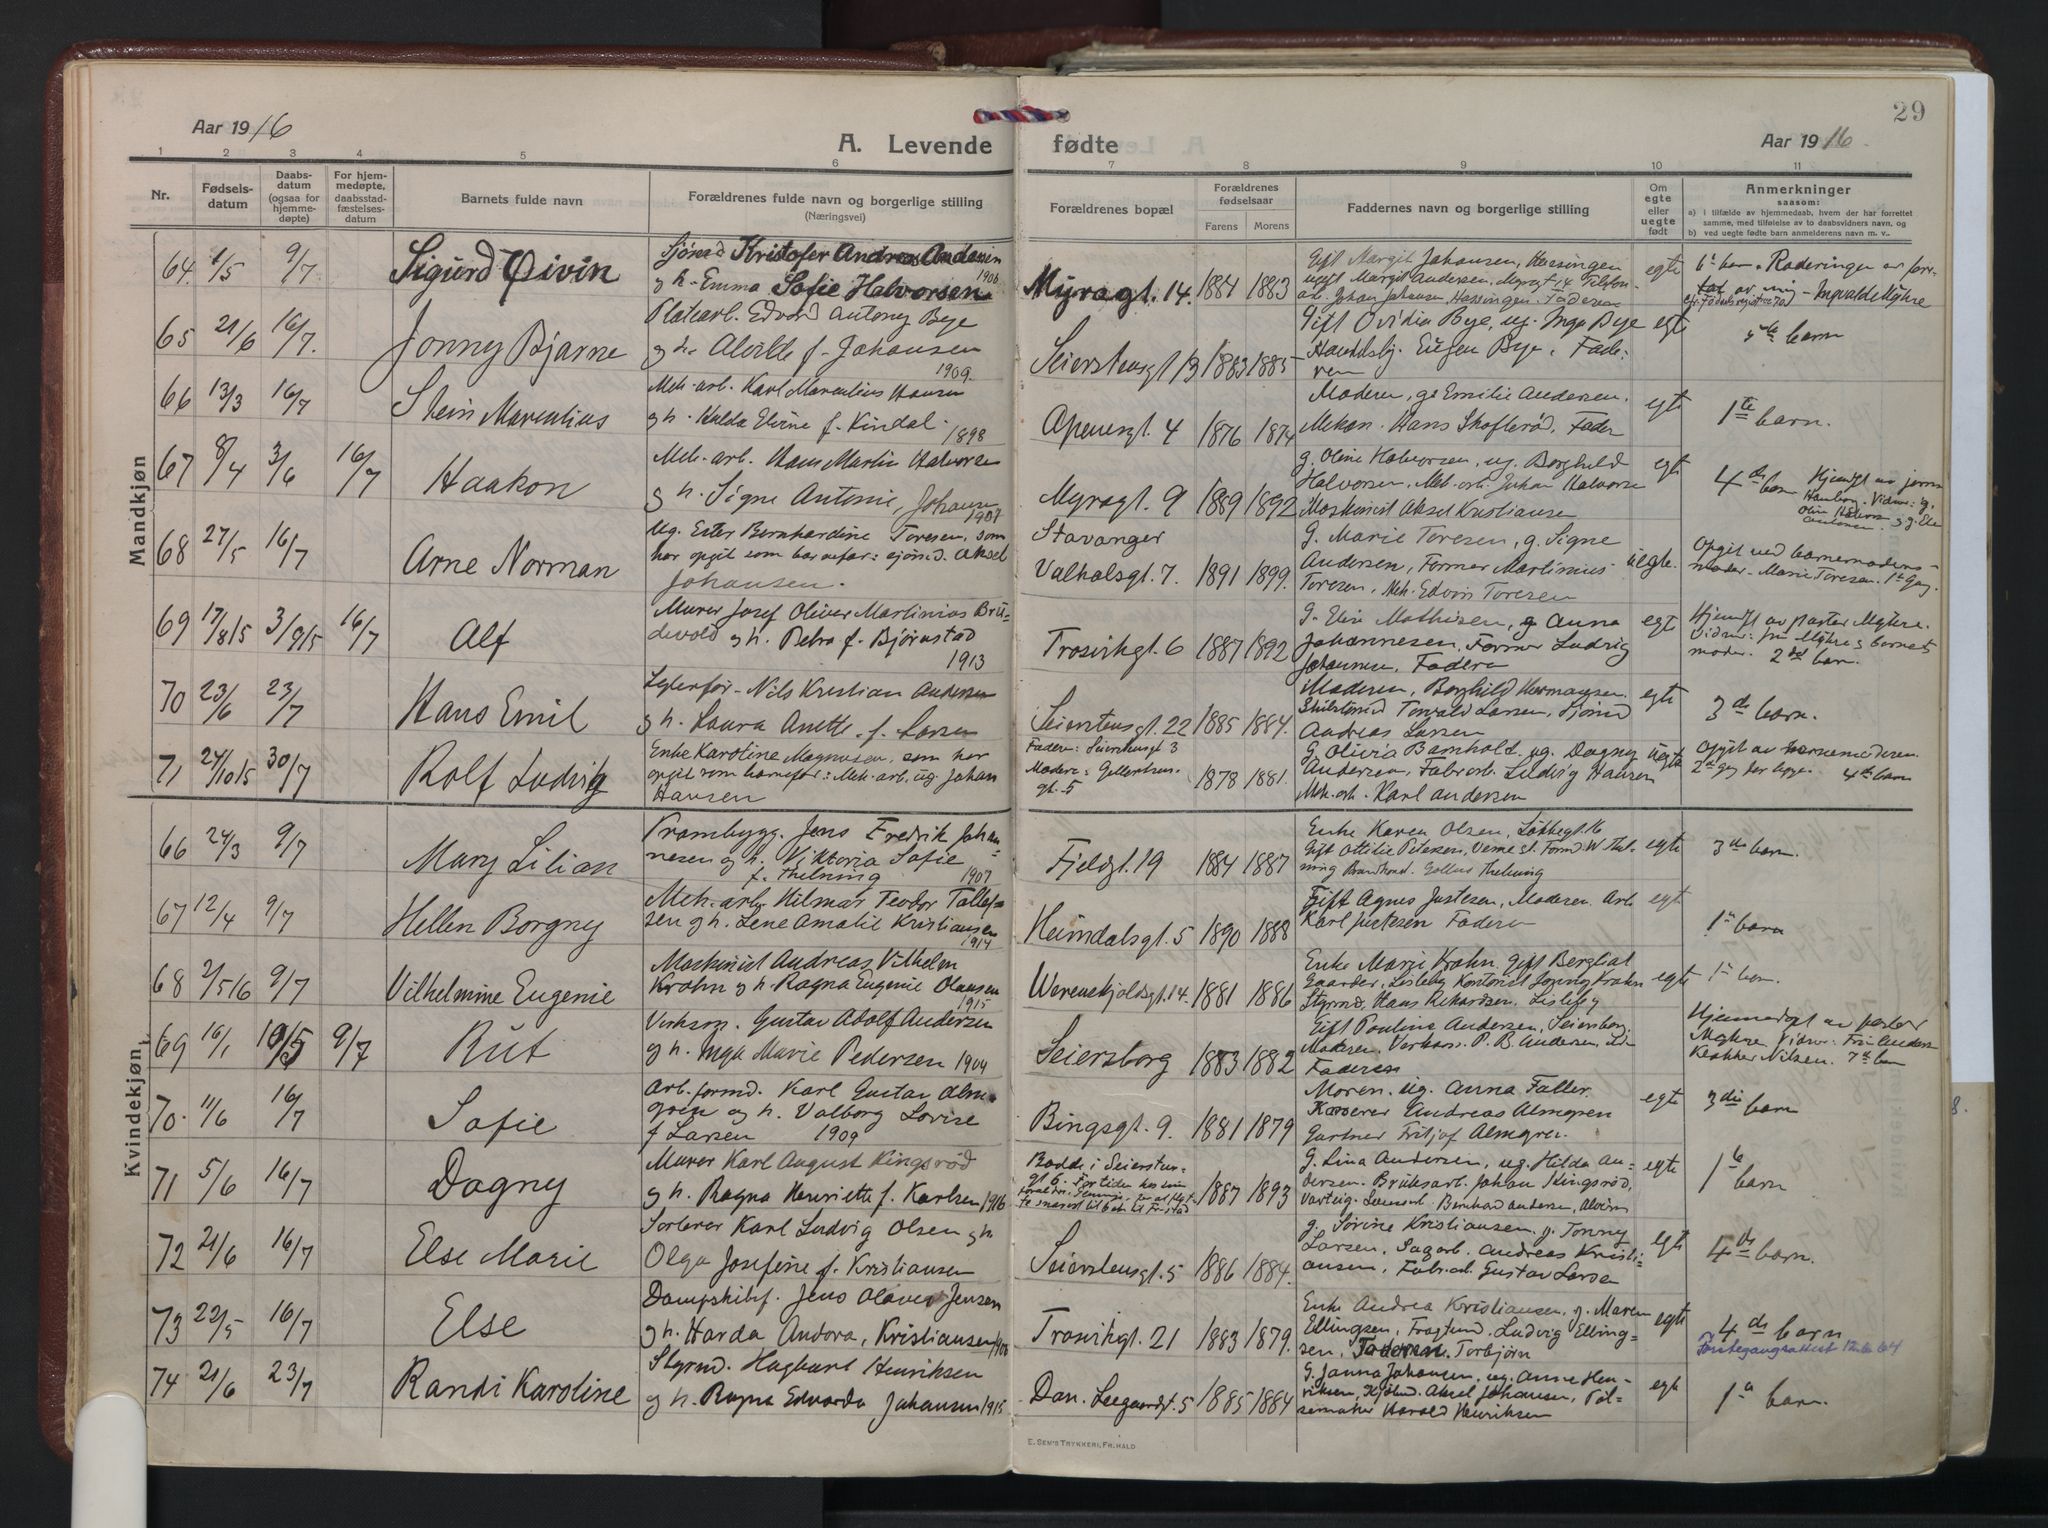 29
Aar 1916
A. Levende fødte
Aar 1916
1 2 3 4 5 6 7 8 9 10 11
Nr.
Fødsels-
datum
Daabs-
datum
(ogsaa for
hjemme-
døpte)
For hjem-
medøpte,
daabsstad-
fæstelses-
datum
Barnets fulde navn
Forældrenes fulde navn og borgerlige stilling
(Næringsvei)
Forældrenes bopæl
Forældrenes
fødselsaar
Farens Morens
Faddernes navn og borgerlige stilling
Om
egte
eller
uegte
født
Anmerkninger
saasom:
a) i tilfælde av hjemmedaab, hvem der har forrettet
samme, med tilføielse av to daabsvidners navn, og
b) ved uegte fødte barn anmelderens navn m. v.
Mandkjøn
64 9/7 Sigurd Øivin
Sjömd Kristofer Andreas Andersen
1906
g h. Emma Sofie Halvorsen
Myragt. 14. 1884 1883
Gift Margit Johansen, Hassingen
ugift Margit Andersen, Myragt 14
Johan Johansen Hassingen. Faderen
egte
6te barn. Raderingen av forr-
av mig - Ingvald Myhre
65 21/6 16/7. Jonny Bjarne
Platearb. Edvard Antony Bye
g h. Alvilde f. Johansen
1909.
Seierstensgt 13 1883 1885
Gift Ovidia Bye, ug. Inga Bye
Handelsbj. Eugen Bye. Fade-
ren
egte
5te barn
66 13/3 16/7 Stein Marentius
Mek. arb. Karl Marentius Hansen
g h. Hulda Elvine f. Kindal.
1898
Apenesgt. 4 1876 1874
Moderen, g Emilie Andersen.
Mekan. Hans Skofterød. Fader
egte
1te barn.
67 8/4 3/6 16/7 Haakon
Mek. arb. Hans Martin Halvorsen
g h. Signe Antonie Johansen
1907
Myragt. 9 1889 1892
g. Oline Halvorsen, ug. Borghild
Halvorsen, Mek. arb. Johan Halvorse
Maskinist Aksel Kristiansen
egte
4de barn
68 27/5 16/7 Arne Norman
Ug. Ester Bernhardine Toresen, som
har opgit som barnefar: sjömd. Aksel
Johansen.
Stavanger
Valhalsgt. 7. 1891 1899.
G. Marie Toresen, g. Signe
Andersen, Former Martinius
Toresen, Mek. Edvin Toresen
uegte.
Opgit ved barnemoders-
moder - Marie Toresen. 1ste Gang.
69 17/8 15 3/9 15 16/7 Alf
Murer Josef Oliver Martinius Bru-
devold g h. Petra f. Björnstad
1913
Trosvikgt. 6 1887 1892
G. Elise Mathisen, g Anna
Johannesen, Former Ludvig
Johannesen, Fadere
egte
Hjemdöpt av pastor Myhre.
Vidner: fru Myhre & barnets
moder. 2det barn.
70 23/6 23/7 Hans Emil
Nils Kristian Andersen
g h. Laura Anette f. Larsen
Seierstensgt. 22 1885 1884.
Moderen, Borghild Hermansen.
Torvald Larsen, Sjömd
Andreas Larsen
egte
3de barn.
71 24/10 15 30/7 Rolf Ludvig
Enke Karoline Magnusen, som har
opgit som barnefar: Mek. arb. ug. Johan
Hansen
Fadere: Seierstensgt 3
Modere: Gellertsens-
gt. 5
1878 1881.
G. Olivia Bamholt, ug. Dagny
Andersen, Fabr. arb. Ludvig Hansen
Mek. arb. Karl Andersen
uegte
Opgit av barnemoderen.
4de barn
Kvindekjøn
66 24/3 9/7 Mary Lilian
Prambygg. Jens Fredrik Johan-
nesen g h. Viktoria Sofie
f. Thelning 1907
Fjeldgt. 19 1884 1887
Enke Karen Olsen,
Gift Ottilie Petersen, W Thel-
ning
egte
3de barn.
67 12/4 9/7 Hellen Borgny
Mek. arb. Hilmar Teodor Tollef-
sen g h. Lene Amalie Kristiansen
1914
Heimdalsgt. 5 1890 1888
Gift Agnes Justesen, Moderen. Arb
Karl Justesen Faderen
egte
1te barn
68 2/5 16 9/7 Vilhelmine Eugenie
Maskinist Andreas Vilhelm
Krohn g h. Ragna Eugenie Olausen
1915
Werenskjoldsgt. 14. 1881 1886
Enke Marie Krohn Gift Bergliot
Gaarder, Lisleby Kontorist Jonny Krohn
Styrmd. Hans Rikardsen. Lisleby
egte
1te barn.
69 16/1 9/7 Rut
Verksm. Gustav Adolf Andersen
g h. Inga Marie Pedersen 1904
Seiersborg 1883 1882
Gift Pauline Andersen, Seiersborg.
Moderen. Verksm. P. B. Andersen
Faderen
Hjemmedöpt av pastor
Myhre. Vidner: Fru Andersen
Klokker Nilsen. 7de barn
70. 11/6 16/7 Sofie
Arb. formd. Karl Gustav Alm-
gren g h. Valborg Lovise
f Larsen 1909
Bingsgt. 9. 1881 1879
Moren. ug. Anna Faller.
Kasserer Andreas Almgren
Gartner Fritjof Almgren.
egte
3die barn
71 5/6 16/7 Dagny
Murer Karl August Kingsrød
g h. Ragna Henriette f. Karlsen 1916
1887 1893
G. Lina Andersen, ug. Hilda An-
dersen. Bruksarb. Johan Kingsröd,
Varteig. Bernhard Andersen, Alvim
egte
1te
barn
72 21/6 16/7 Else Marie
Sorterer Karl Ludvig Olsen g h
Olga Josefine f. Kristiansen
Seierstensgt. 5 1886 1884.
g. Sorine Kristiansen, g. Tonny
Larsen, Sagarb. Andreas Kristi-
ansen, Fabr. arb. Gustav Larsen
egte
4de barn.
73 22/5 16/7 Else
Dampskibsf. Jens Olaves Jensen
g h. Harda Andora, Kristiansen 1906
Trosvikgt. 21 1883 1879.
Enke Andrea Kristiansen, g. Maren
Ellingsen, Ludvig Elling-
sen, Faderen. Torbjörn
egte
4de barn
74 21/6 23/7 Randi Karoline
Styrmd. Hagbart Henriksen
g h. Ragna Edvarda Johansen 1915
Dan. Leegaardgt. 5 1885 1884
G. Janna Johansen, ug. Anne Hen-
riksen, Aksel Johansen, Pöl-
semaker Harald Henriksen
egte
1te barn.
E. SEM'S TRYKKERI, FR.HALD
8.